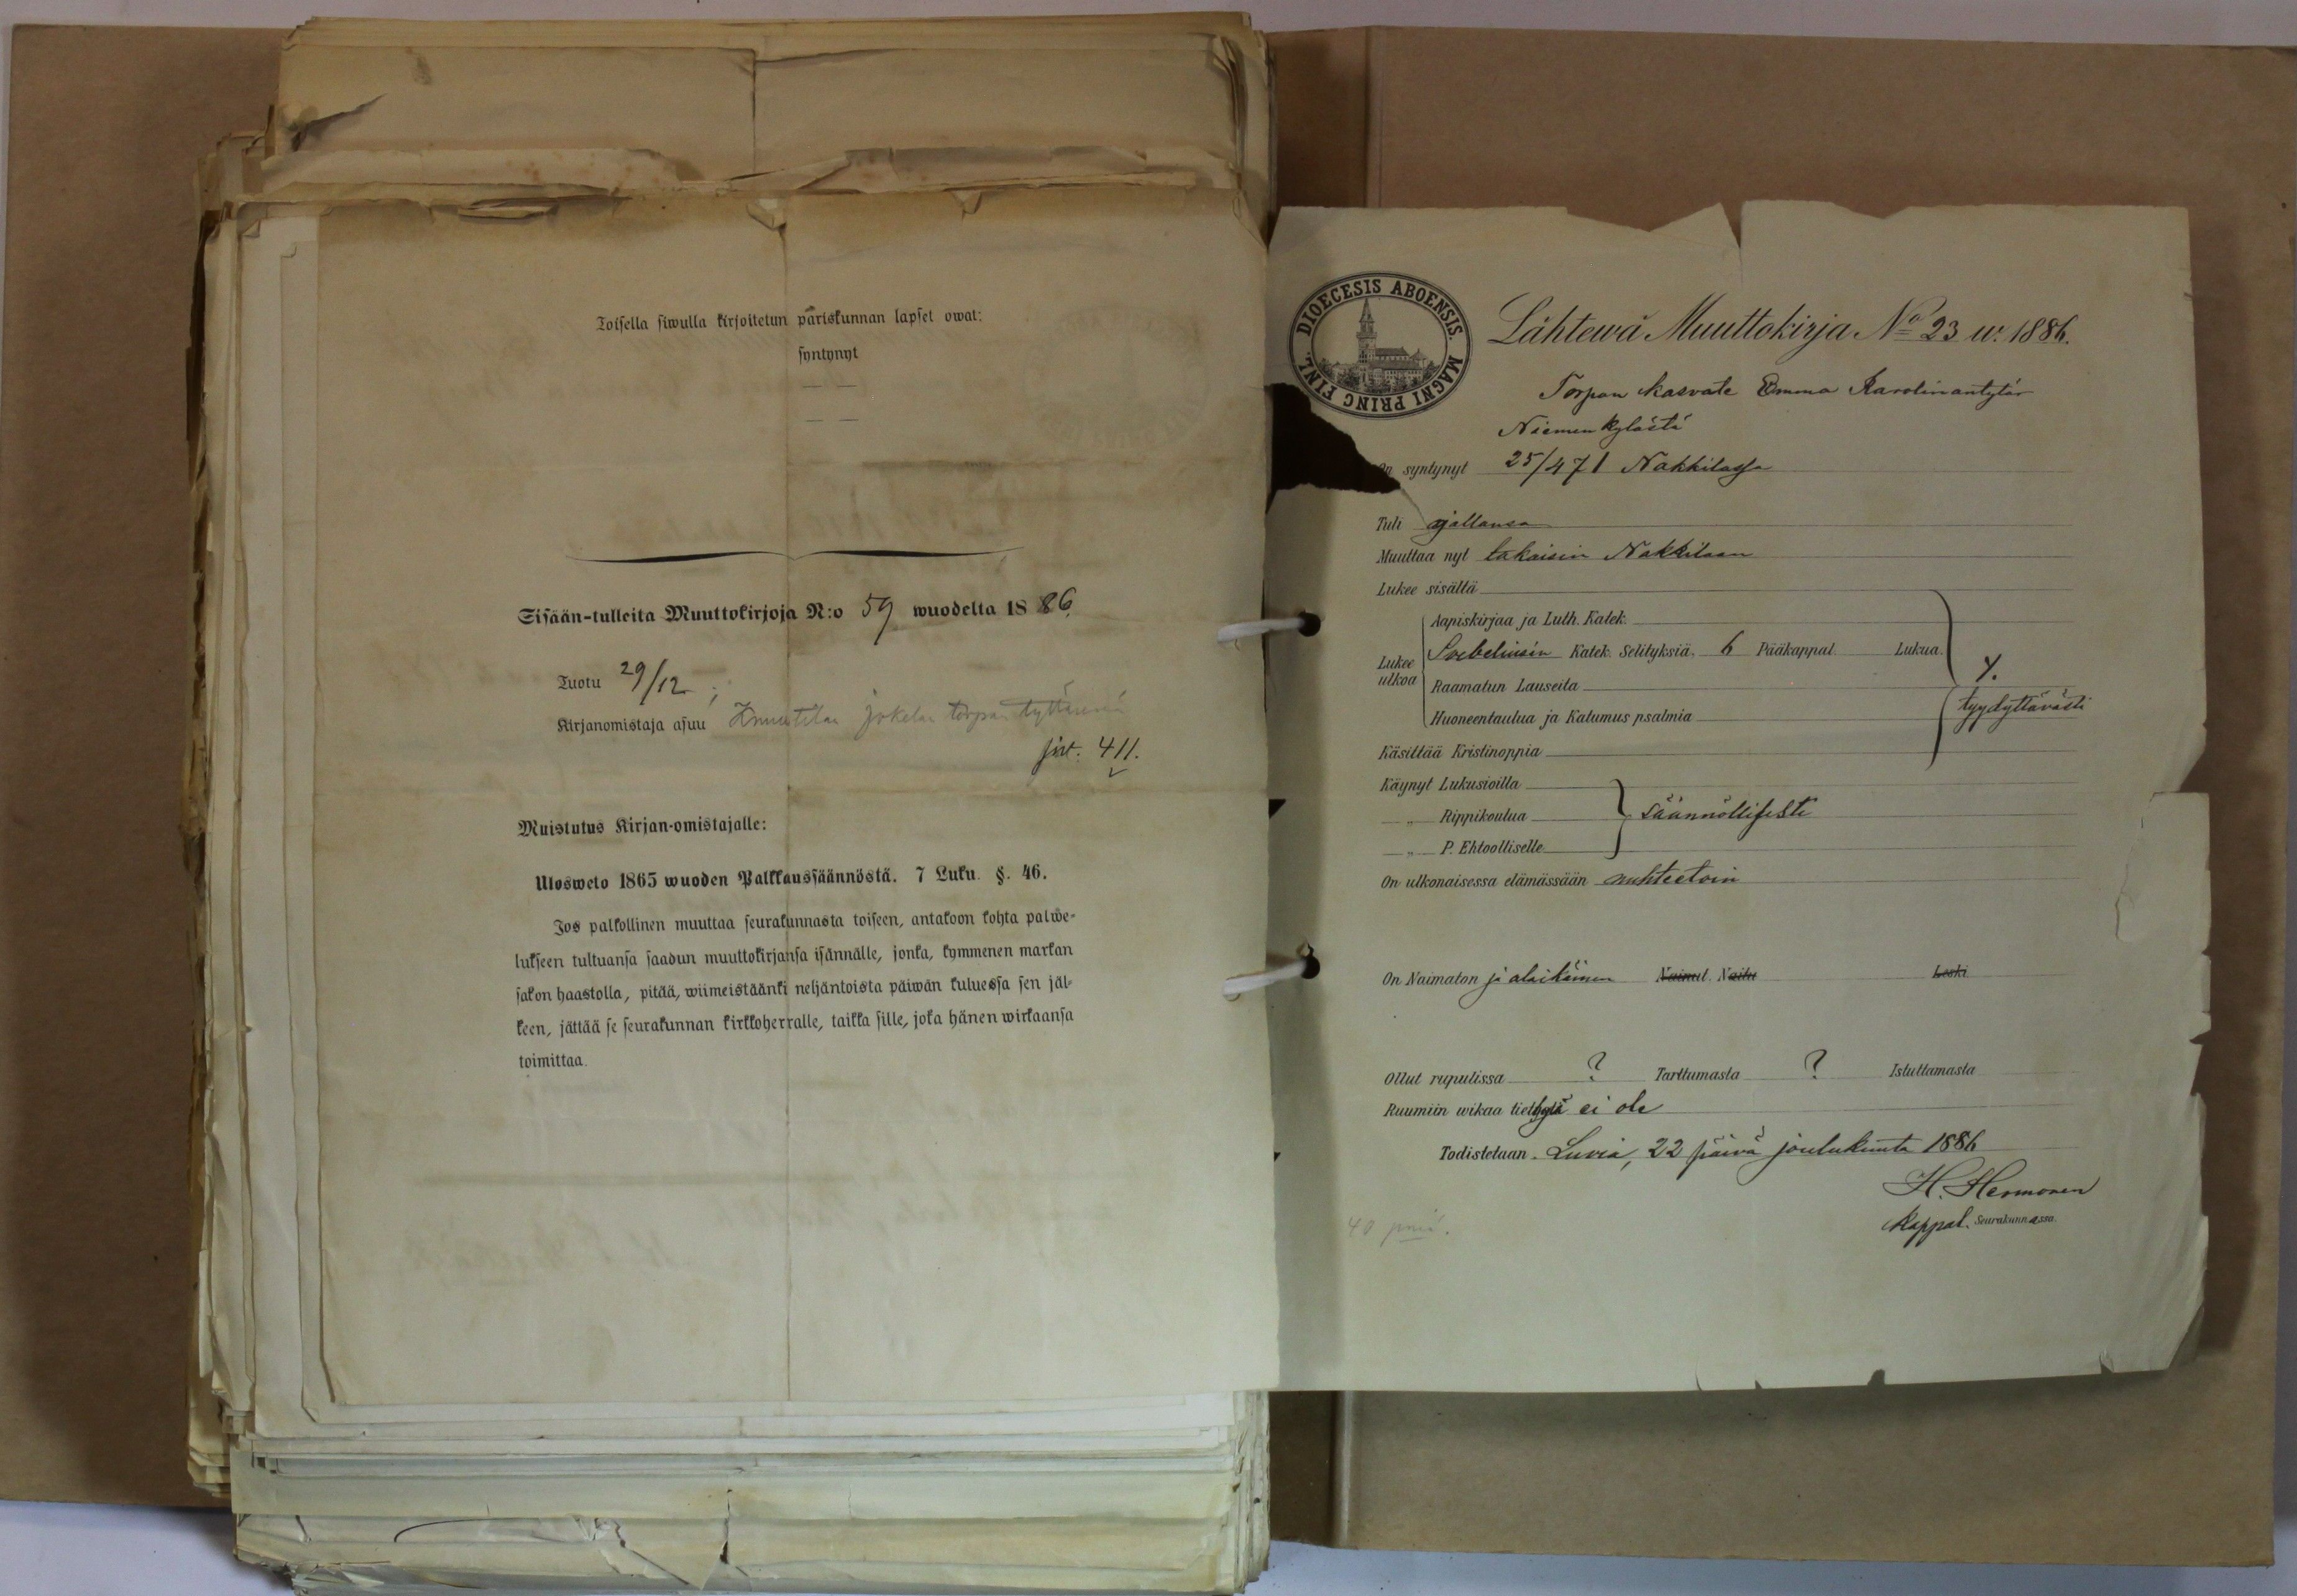 Toisella siwulla kirjoitetun pariskunnan lapset owat:
syntynyt
— —
— —
Sisään-tulleita Muuttokirjoja N:o 59 wuodelta 1886.
Tuotu 29/12 ;
Kirjanomistaja asuu Knuutilan Jokelan torpan tyttärenä
sivt. 411.
Muistutus Kirjan-omistajalle:
Ulosweto 1865 wuoden Palkkaussäännöstä. 7 Luku. §. 46.
Jos palkollinen muuttaa seurakunnasta toiseen, antakoon kohta palwe-
lukseen tultuansa saadun muuttokirjansa isännälle, jonka, kymmenen markan
sakon haastolla, pitää, wiimeistäänki neljäntoista päiwän kuluessa sen jäl-
keen, jättää se seurakunnan kirkkoherralle, taikka sille, joka hänen wirkaansa
toimittaa.
DIOECESIS ABOENSIS. MAGNI PRINC FINL.
Lähtewä Muuttokirja No 23 w. 1886.
Torpan kasvate Emma Karolinantytär
Niemenkylästä
On syntynyt 25/4 71 Nakkilassa
Tuli
Muuttaa nyt takaisin Nakkilaan
Lukee sisältä
Aapiskirjaa ja Luth. Katek.
Lukee ulkoa
Svebeliusen Katek. Selityksiä. 6 Pääkappal. Lukua.
Raamatun Lauseita
Huoneentaulua ja Katumus psalmia
tyydyttävästi
Käsittää Kristinoppia
Käynyt Lukusioilla
—„— Rippikoulua säännöllisesti
—„— P. Ehtoolliselle
On ulkonaisessa elämässään nuhteetoin
On Naimaton ja alaikäinen Nainut. Naitu Leski
Ollut rupulissa ? Tarttumasta ? Istuttamasta
Ruumiin wikaa tiettyä ei ole
Todistetaan. Luvia, 22 päivä joulukuuta 1886
H. Hermonen
Kappal. Seurakunnassa.
40 pniä.